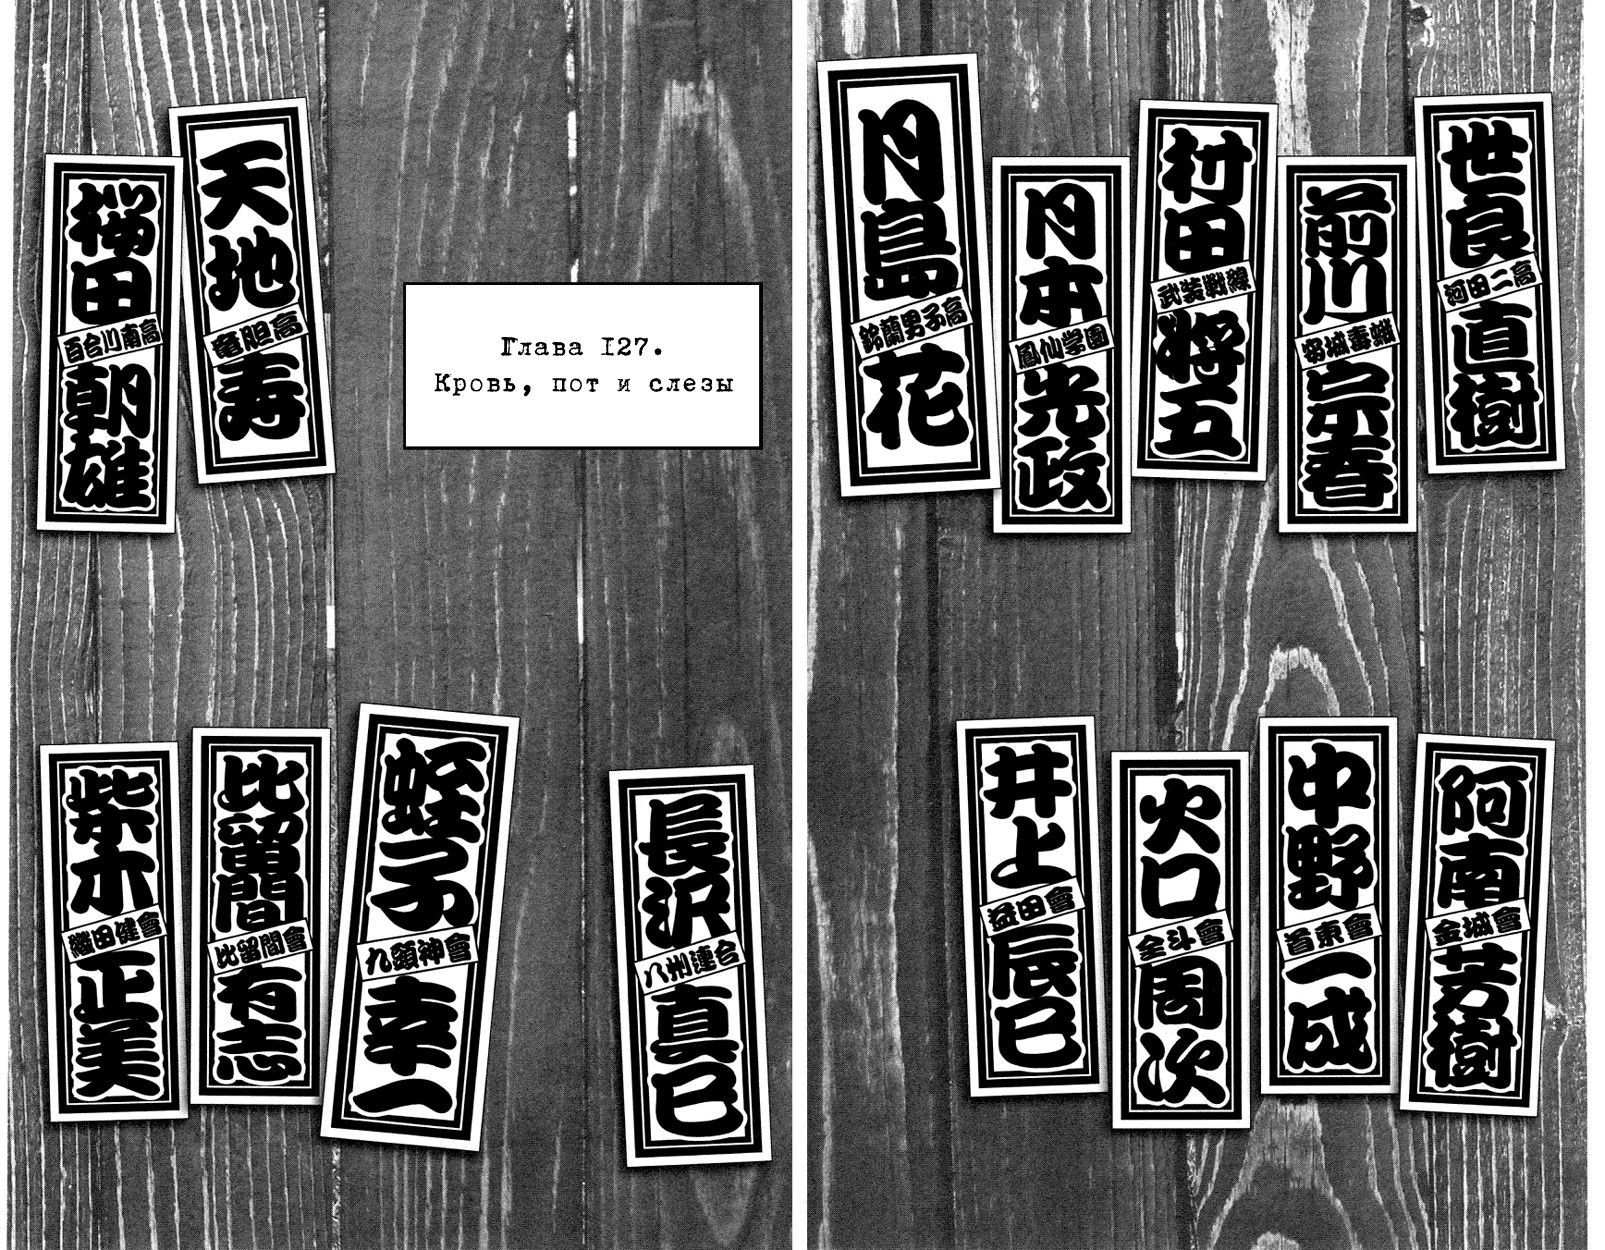 世良直樹
河田二高
前川宗春
村田将五
武装戦線
月本光政
鳳仙学園
月島花
鈴蘭男子高
阿南芳樹
金城會
中野一成
首東會
火口周次
全斗會
井上辰巳
益田會
天地寿
竜胆高
桜田朝雄
百合川南高
Глава 127.
Кровь, пот и слезы
長沢真巳
八州連合
蛭子幸一
九頭神會
比留間有志
比留間會
柴木正美
織田健會